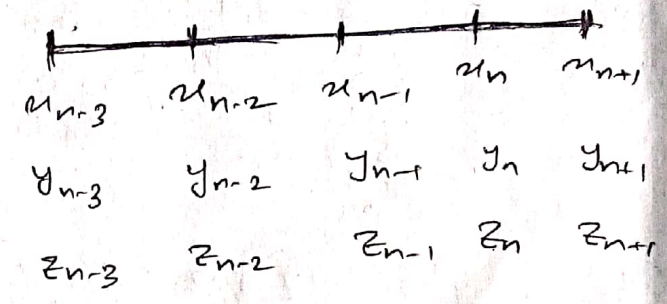 x_{n-3} x_{n-2} x_{n-1} x_n x_{n+1}
y_{n-3} y_{n-2} y_{n-1} y_n y_{n+1}
z_{n-3} z_{n-2} z_{n-1} z_n z_{n+1}